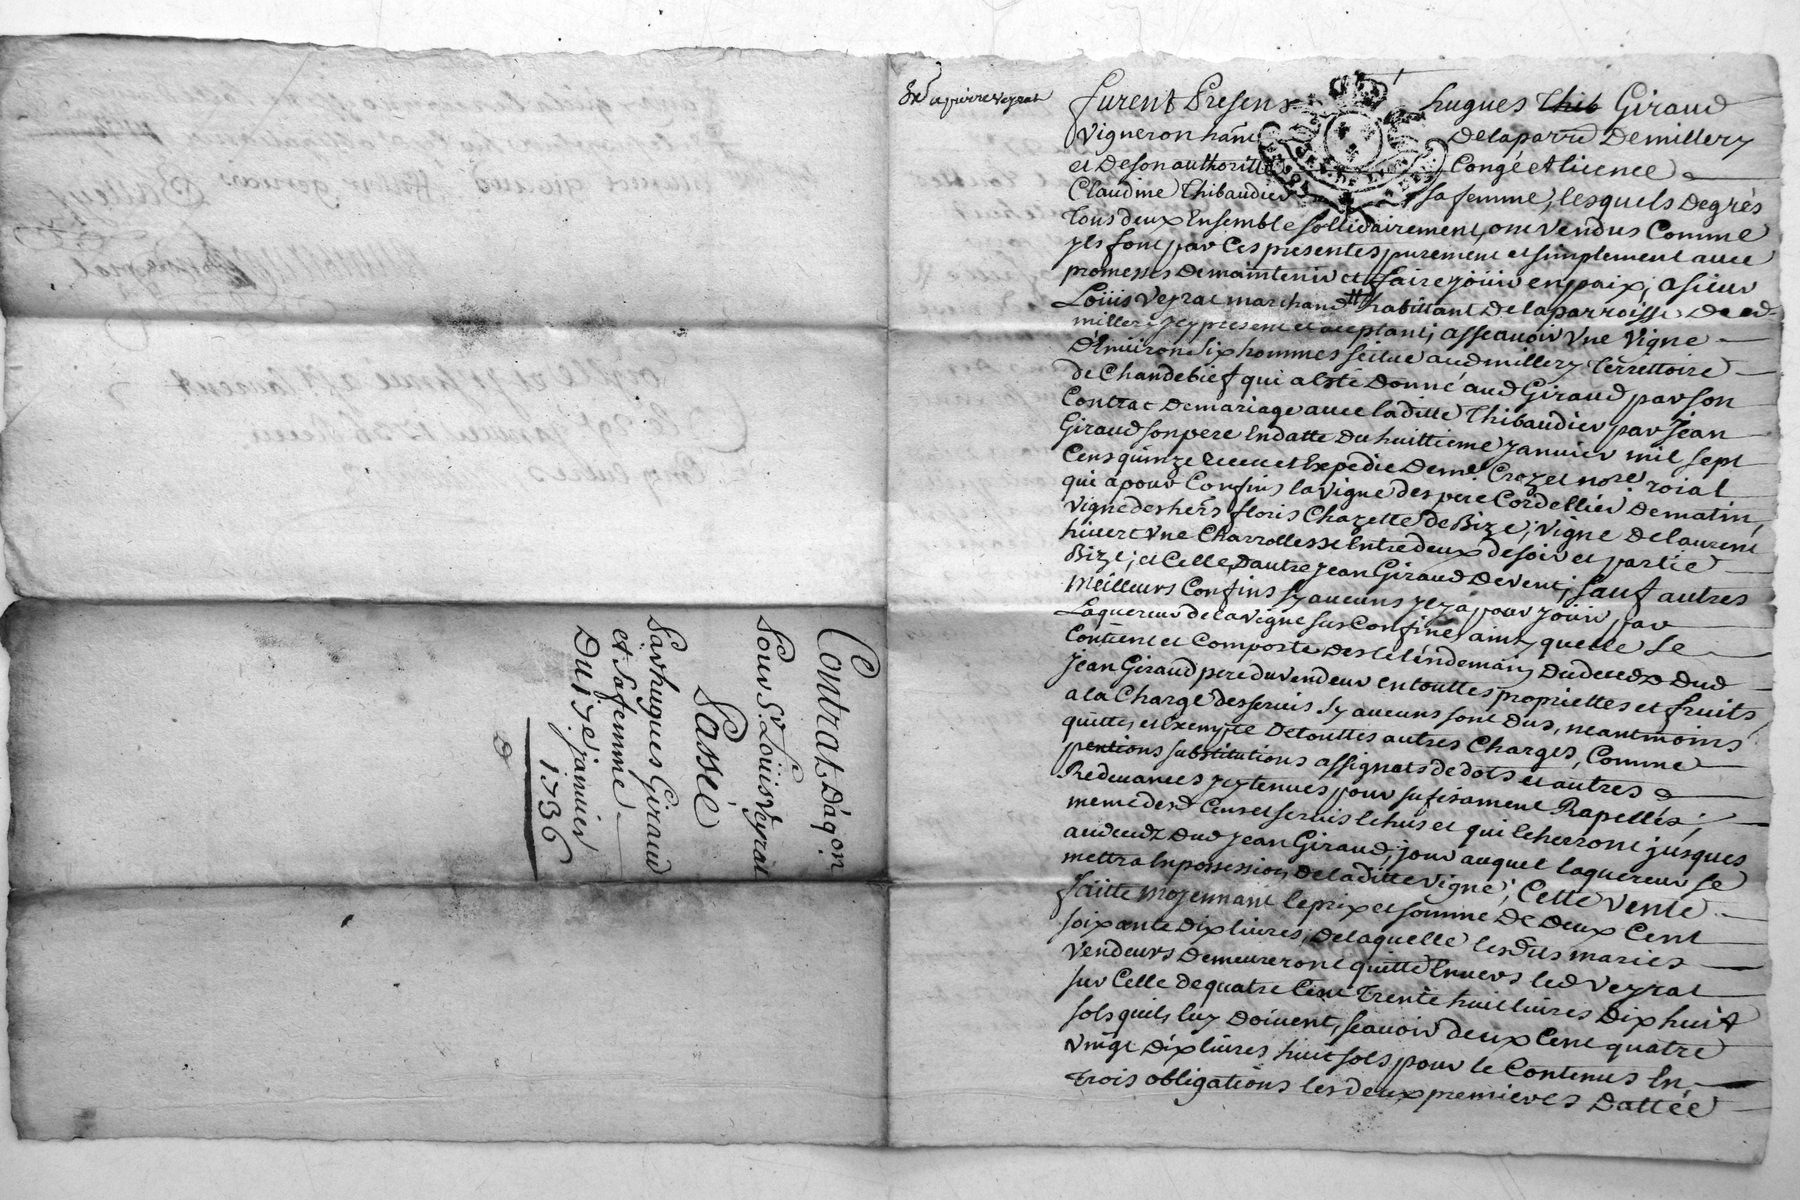 furent Presens hugues Thib Giraud
vigneron de la parr. de millery
et de son authoritte Congé et licence
Claudine Thibaudier sa femme, lesquels de grés
tous deux Ensemble sollidairement, ont vendus Comme
yls font par Ces presentes purement et simplement avec
promesses de maintenir et faire joüir en paix, a sieur
Loüis Veyrat marchand habittant de la parroisse dud.
millery, icy present et aceptant, assçauoir une vigne
D'Enuiron six hommes scitue aud millery Térrettoire
de Chandebief qui a Esté Donné aud Giraud par son
Contrat de mariage auec laditte Thibaudier par Jean
Giraud son pere En datte du huittieme Janvier mil sept
Cens quinze receu et Expedié de me. Crozet nore. roial
qui a pour Confins la vigne des pere Cordellier de matin,
vigne des hers floris Chazette de Bize, vigne de laurent
hiuert une Charrollesse Entre deux de soir et partie
Bize, et Celle d'autre Jean Giraud de vent, sauf autres
Meilleurs Confins sy aucuns y en a pour joüir par
Laquereur de la vigne sus Confiné ainsy quelle se
Contient et Comporte des le lendemain du decedz dud
Jean Giraud pere du vendeur en touttes proprietes et fruits,
a la Charge des seruis sy aucuns sont dus, neantmoins
quitte, et Exempte de touttes autres Charges, Comme
pentions substitutions assignats de dots et autres
Redeuances icy tenues pour sufisament Rapellés,
meme desd Cens et seruis Echus et qui Echerront jusques
au decedz dud Jean Giraud, jour auquel laquereur se
mettra En possession de laditte vigne, Cette vente
faitte moyennant le prix et somme de deux Cent
soixante dix liures, de laquelle lesdits maries
vendeurs demeureront quitte Enuers led Veyrat
sur Celle de quatre Cent Trente huit liures dix huit
sols quils luy doiuent, scauoir deux Cent quatre
vingt dix liures huit sols pour le Contenus En
trois obligations les deux premieres dattée
Contrat d'aqon
Pour Sr. Loüis Veyrat
Passé
Par hugues Giraud
et sa femme
Du 17e janvier
1736